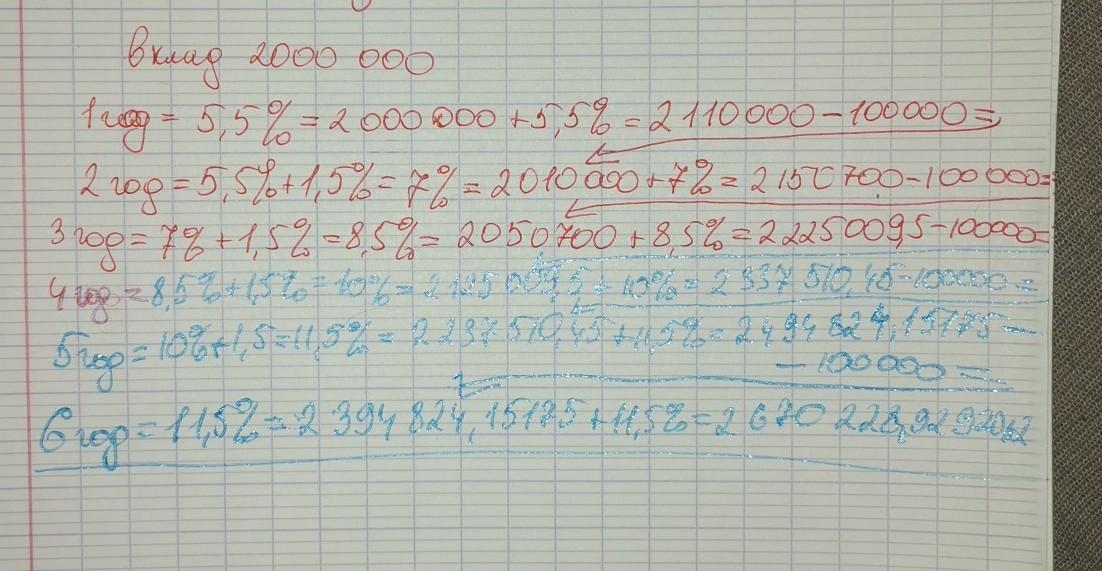 вклад 2000 000
1 год = 5,5% = 2 000 000 + 5,5% = 2 110000 - 100000 =
2 год = 5,5% + 1,5% = 7% = 2010 000 + 7% = 2 150 700 - 100 000 =
3 год = 7% + 1,5% = 8,5% = 2050700 + 8,5% = 2225009,5 - 100000 =
4 год = 8,5% + 1,5% = 10% = 2 125 009,5 + 10% = 2 337 510,45 - 100000 =
5 год = 10% + 1,5 = 11,5% = 2237 510,45 + 11,5% = 2494 824,15175 -
- 100000 =
6 год = 11,5% = 2 394 824, 15175 + 11,5% = 2 670 228,92920